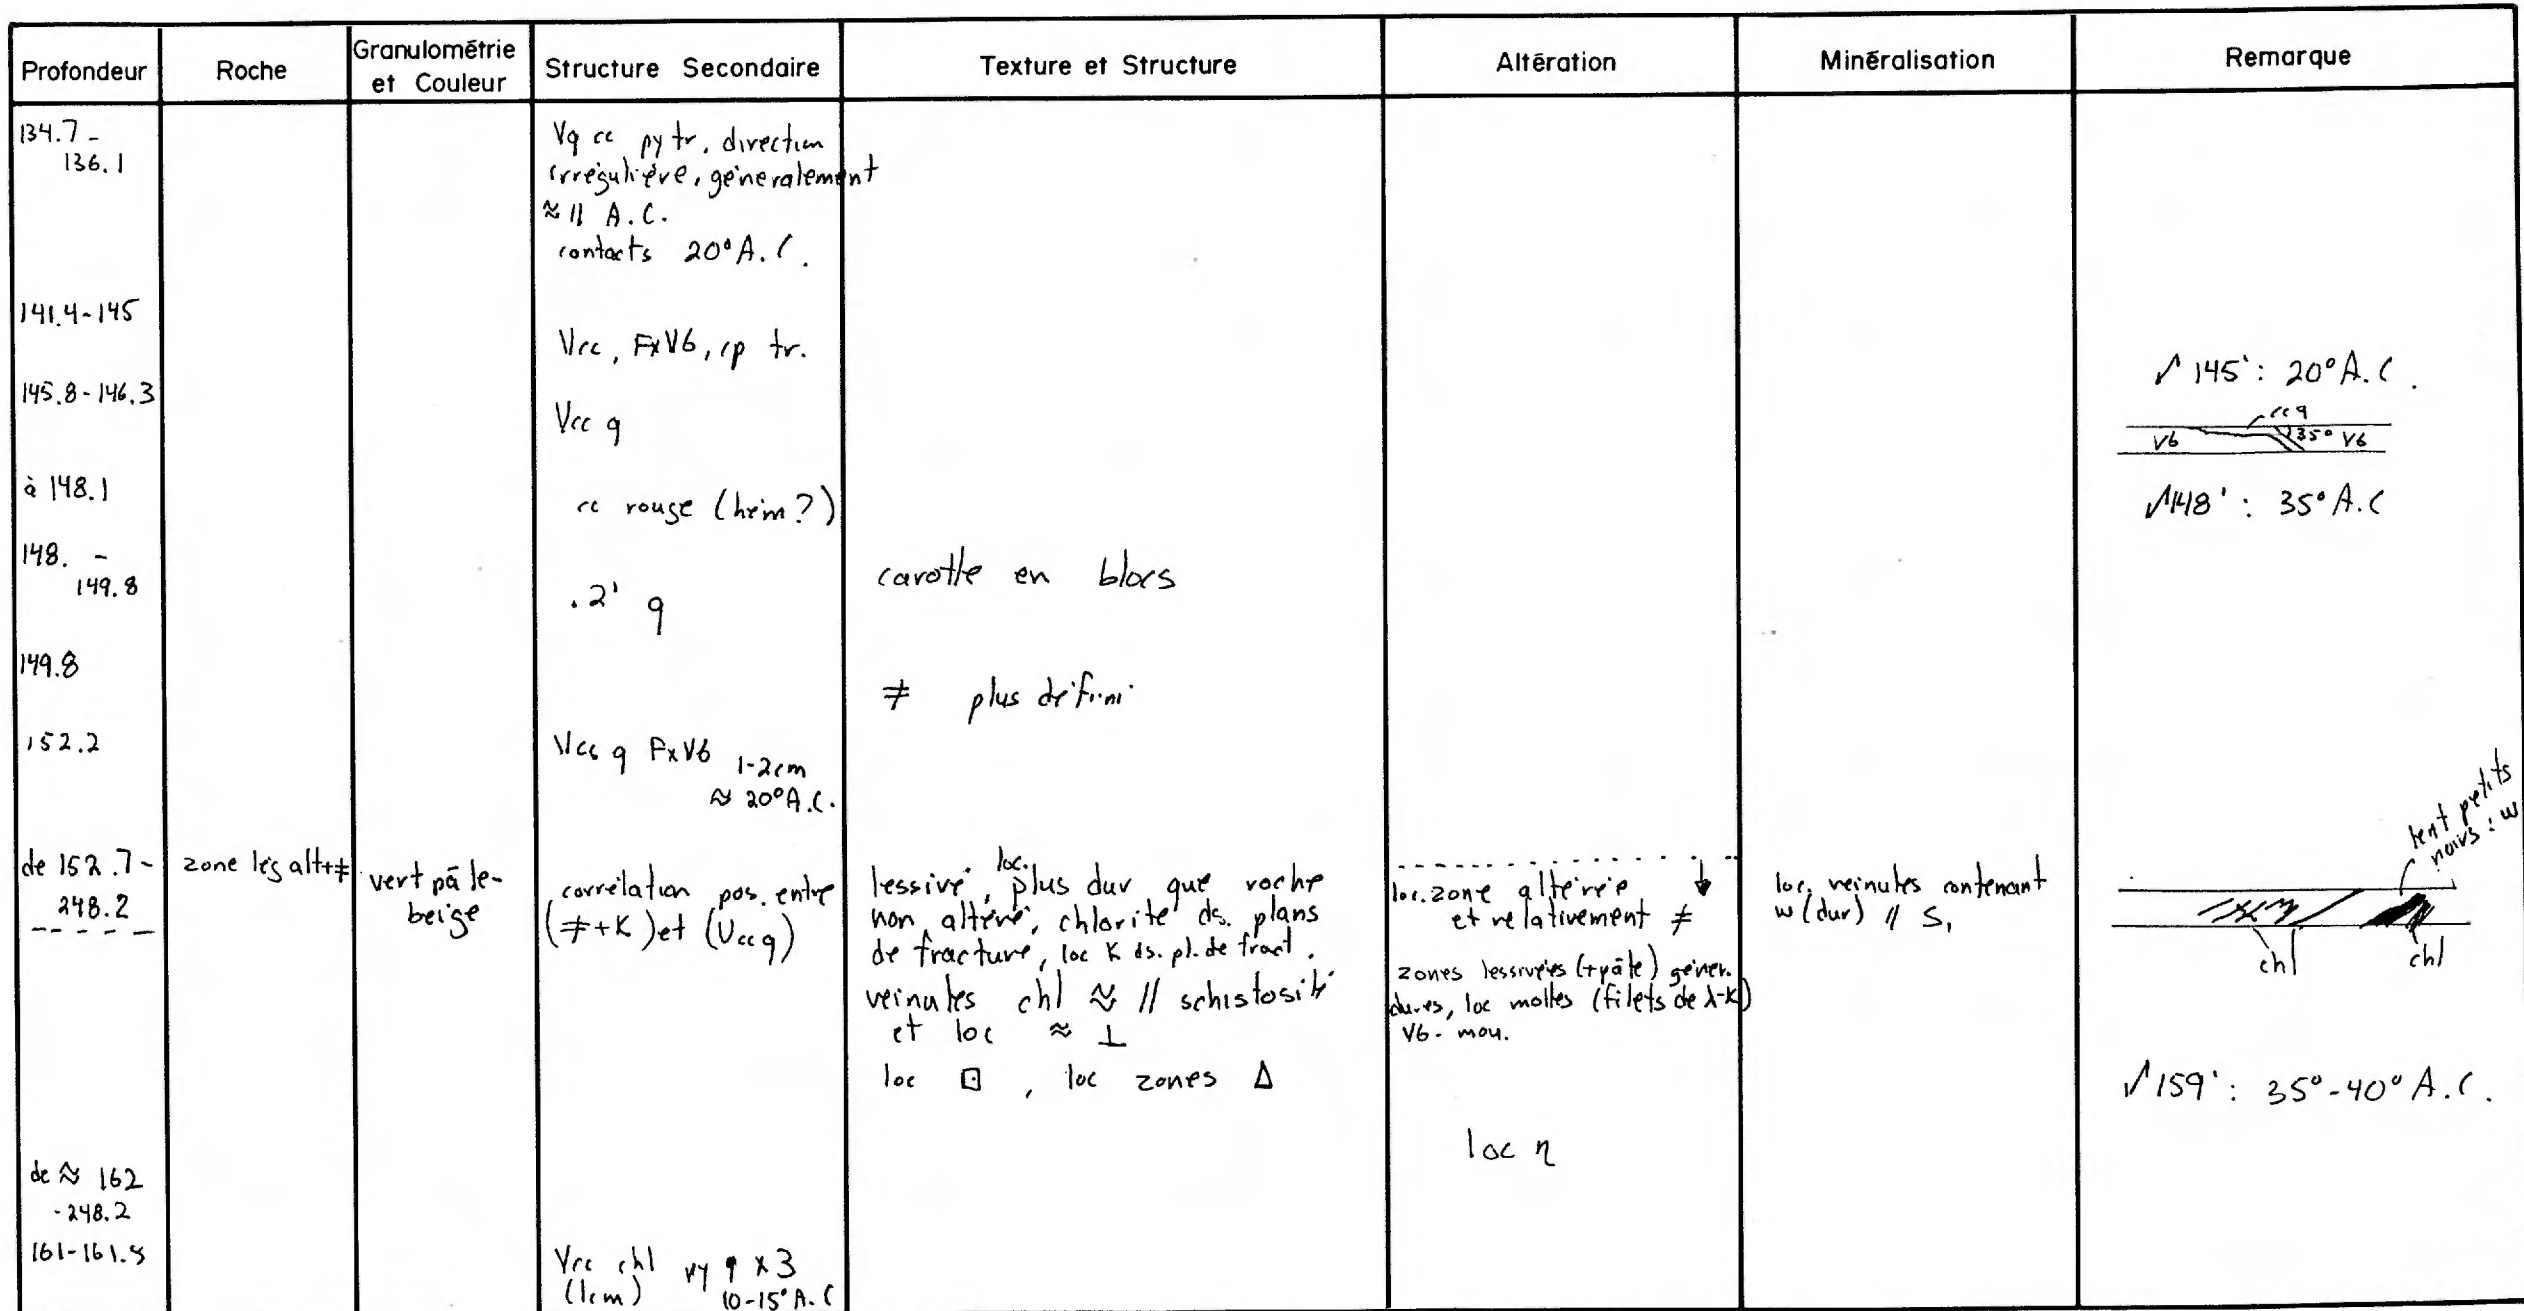 Profondeur
Roche
Granulométrie
et Couleur
Structure Secondaire
Texture et Structure
Altération
Minéralisation
Remarque
134.7 -
136.1
Vq cc py tr. direction
irrégulière, généralement
≈ // A.C.
contacts 20° A.C.
141.4-145
Vcc, FxV6, cp tr.
✓ 145': 20° A.C.
145.8-146.3
Vcc q
cc q
V6
35° V6
à 148.1
cc rouge (hém?)
✓148' : 35° A.C
148. -
149.8
.2' q
carotte en blocs
149.8
≠ plus défini
152.2
Vcc q FxV6 1-2cm
≈ 20° A.C.
de 152.7-
248.2
zone lég alt+≠
vert pâle-
beige
corrélation pos. entre
(≠+K) et (Vccq)
lessivé, loc. plus dur que roche
non altéré, chlorite ds. plans
de fracture, loc K ds. pl. de fract.
veinules chl ≈ // schistosité
et loc ≈ ⊥
loc ⊡ , loc zones Δ
loc. zone altérée
et relativement ≠
zones lessivées (+pâle) génér.
dures, loc molles (filets de λ-K)
V6- mou.
loc. veinules contenant
w (dur) // S,
petits
noirs : w
chl
chl
✓159': 35°-40° A.C.
de ≈ 162
-248.2
loc η
161-161.8
Vcc chl py q x 3
(1cm) 10-15° A.C